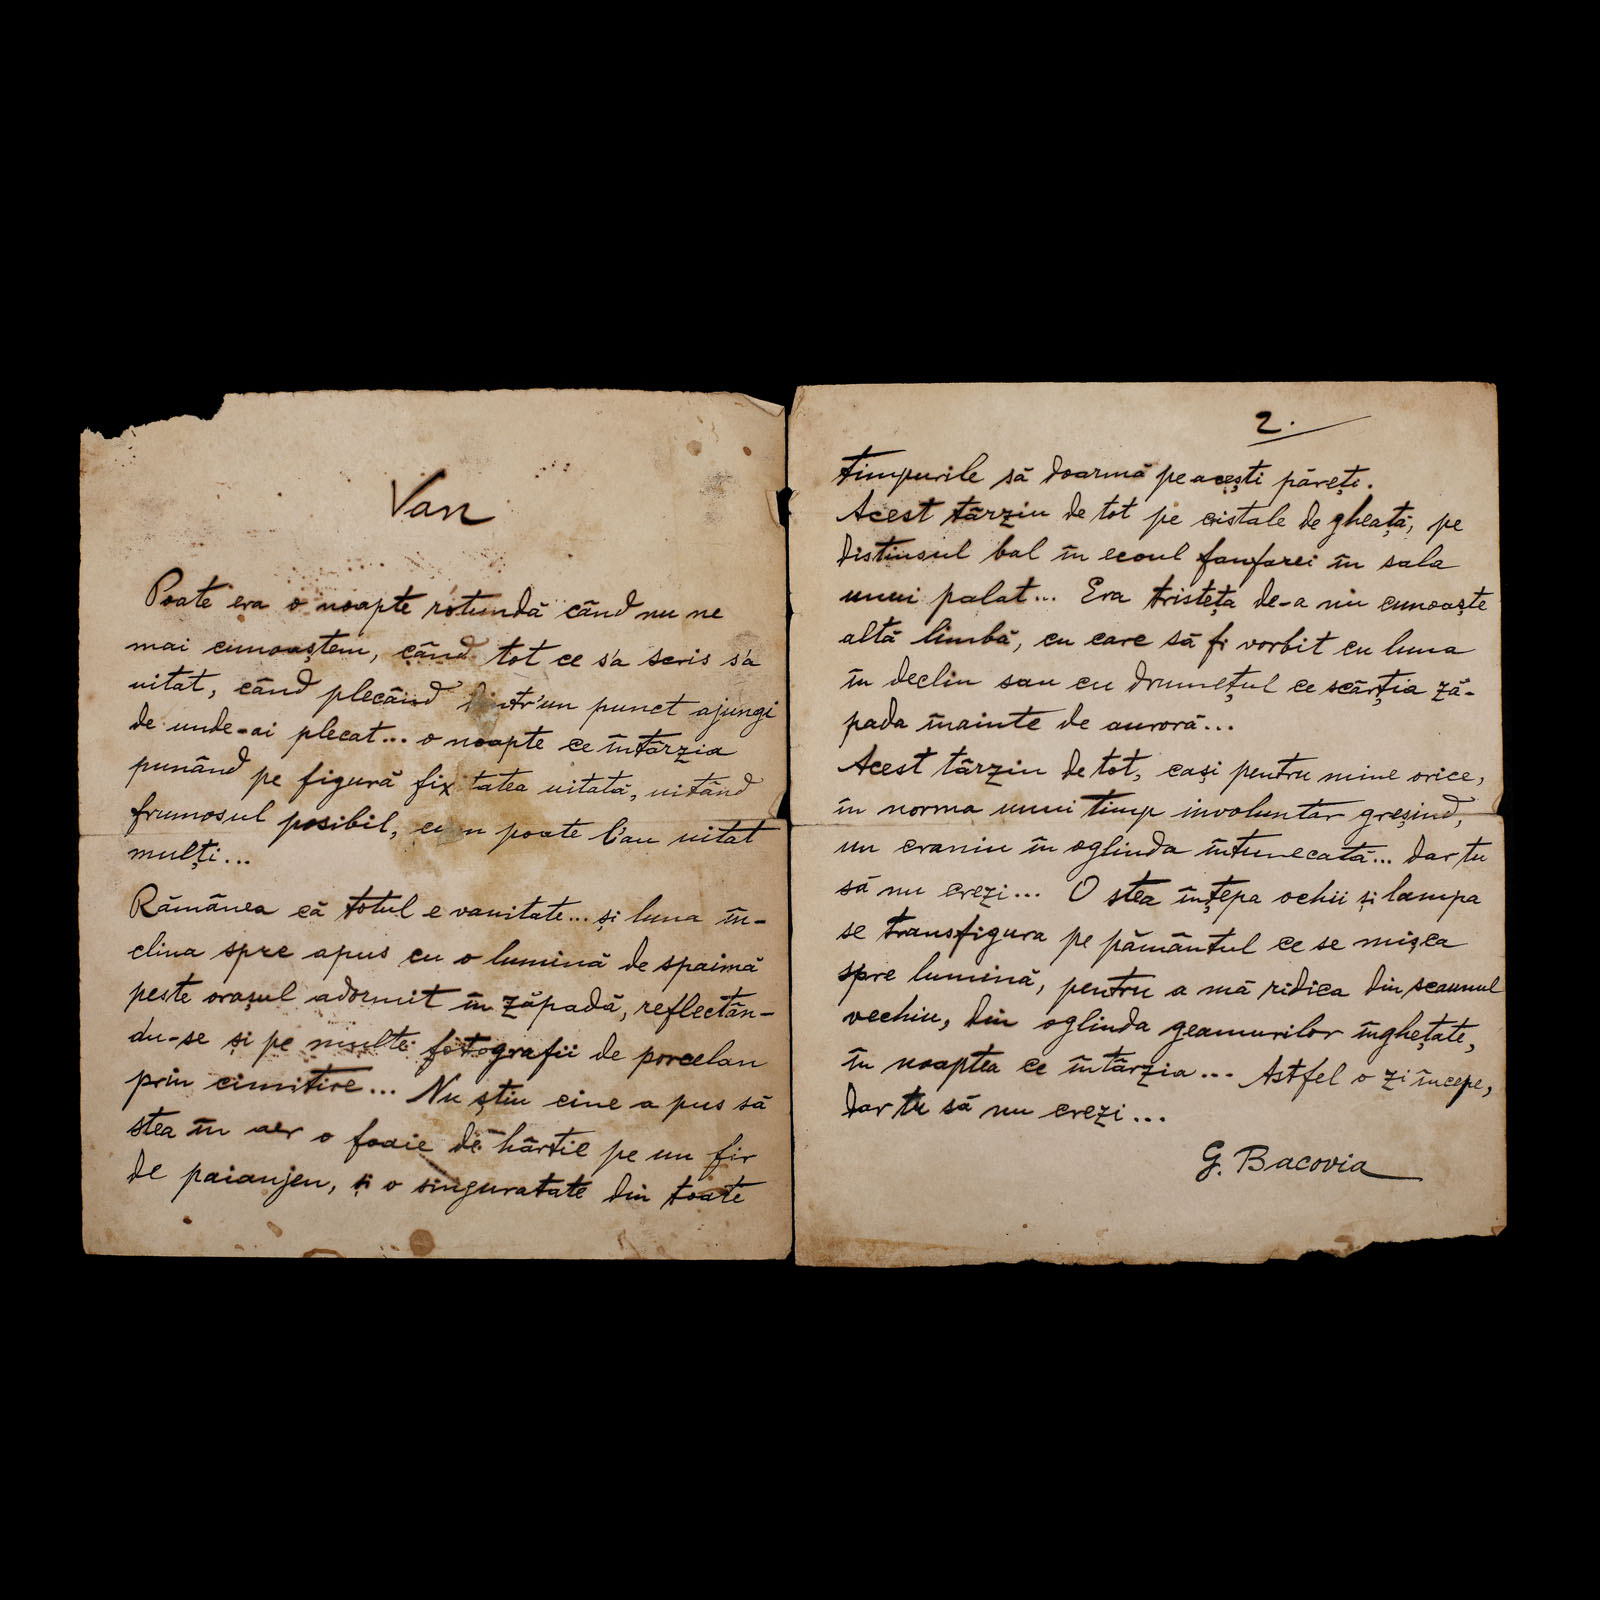 Van
Poate era o noapte rotundă când nu ne
mai cunoaștem, când tot ce s'a scris s'a
uitat, când plecând dintr'un punct ajungi
de unde-ai plecat... o noapte ce întârzia
punând pe figură fixitatea uitată, uitând
frumosul posibil, cum poate l'au uitat
mulți...
Rămânea că totul e vanitate... și luna în-
clina spre apus cu o lumină de spaimă
peste orașul adormit în zăpadă, reflectân-
du-se și pe multe fotografii de porcelan
prin cimitire... Nu știu cine a pus să
stea în aer o foaie de hârtie pe un fir
de paianjen, și o singuratate din toate
2.
timpurile să doarmă pe acești părețî.
Acest târziu de tot pe cistale de gheață, pe
distinsul bal în ecoul fanfarei în sala
unui palat... Era tristeța de-a nu cunoaște
altă limbă, cu care să fi vorbit cu luna
în declin sau cu drumețul ce scârția ză-
pada înainte de auroră...
Acest târziu de tot, cași pentru mine orice,
în norma unui timp involuntar greșind,
un craniu în oglinda întunecată... dar tu
să nu crezi... O stea înțepa ochii și lampa
se transfigura pe pământul ce se mișca
spre lumină, pentru a mă ridica din scaunul
vechiu, din oglinda geamurilor înghețate,
în noaptea ce întârzia... Astfel o zi începe,
dar tu să nu crezi...
G. Bacovia